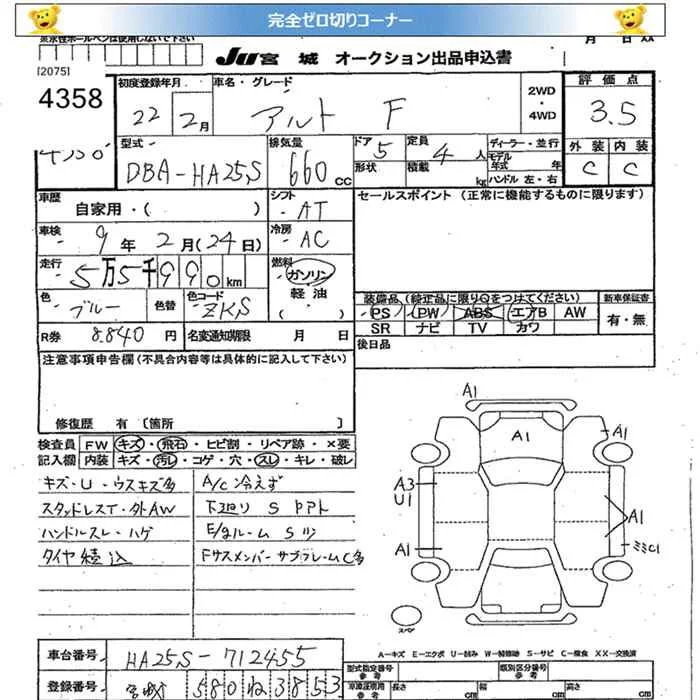 完全ゼロ切りコーナー
月 日 AA
[2075]
JU 宮城 オークション出品申込書
4358
初度登録年月 22年 2月
車名・グレード アルト F
2WD・4WD
評価点 3.5
型式 DBA-HA25S
排気量 660 cc
ドア 5
形状
定員 4人
積載 kg
ディーラー・並行
モデル年式 年
ハンドル 左・右
外装 内装
C C
車歴 自家用・( )
シフト AT
セールスポイント (正常に機能するものに限ります)
車検 9年2月(24日)
冷房 AC
走行 5万5千990km
燃料 ガソリン 軽油 ( )
色 ブルー 色替
色コード ZKS
装備品(純正品に限りOをつけてください)
新車保証書
PS PW ABS エアB AW
有・無
SR ナビ TV カワ
R券 8,840円
名変通知期限 月 日
後日品
注意事項申告欄(不具合内容等は具体的に記入して下さい)
修復歴 有 〔箇所 〕
検査員 FW キズ・飛石・ヒビ割・リペア跡・×要
記入欄 内装 キズ・汚レ・コゲ・穴・スレ・キレ・破レ
キズ・U・ウスキズ多
A/C 冷えず
スタッドレスT・外AW
下廻り S アト
ハンドルスレ・ハゲ
E/gルーム S
タイヤ積込
Fサスメンバー サブフレームC多
A1
A1
A1
A3
U1
A1
A1
C1
スペア
A-キズ E-エクボ U-凹み W-補修跡 S-サビ C-腐食 XX-交換済
車台番号 HA25S-712455
型式指定番号
類別区分番号
登録番号 宮城 580 ね 3853
長さ cm
幅 cm
高さ cm